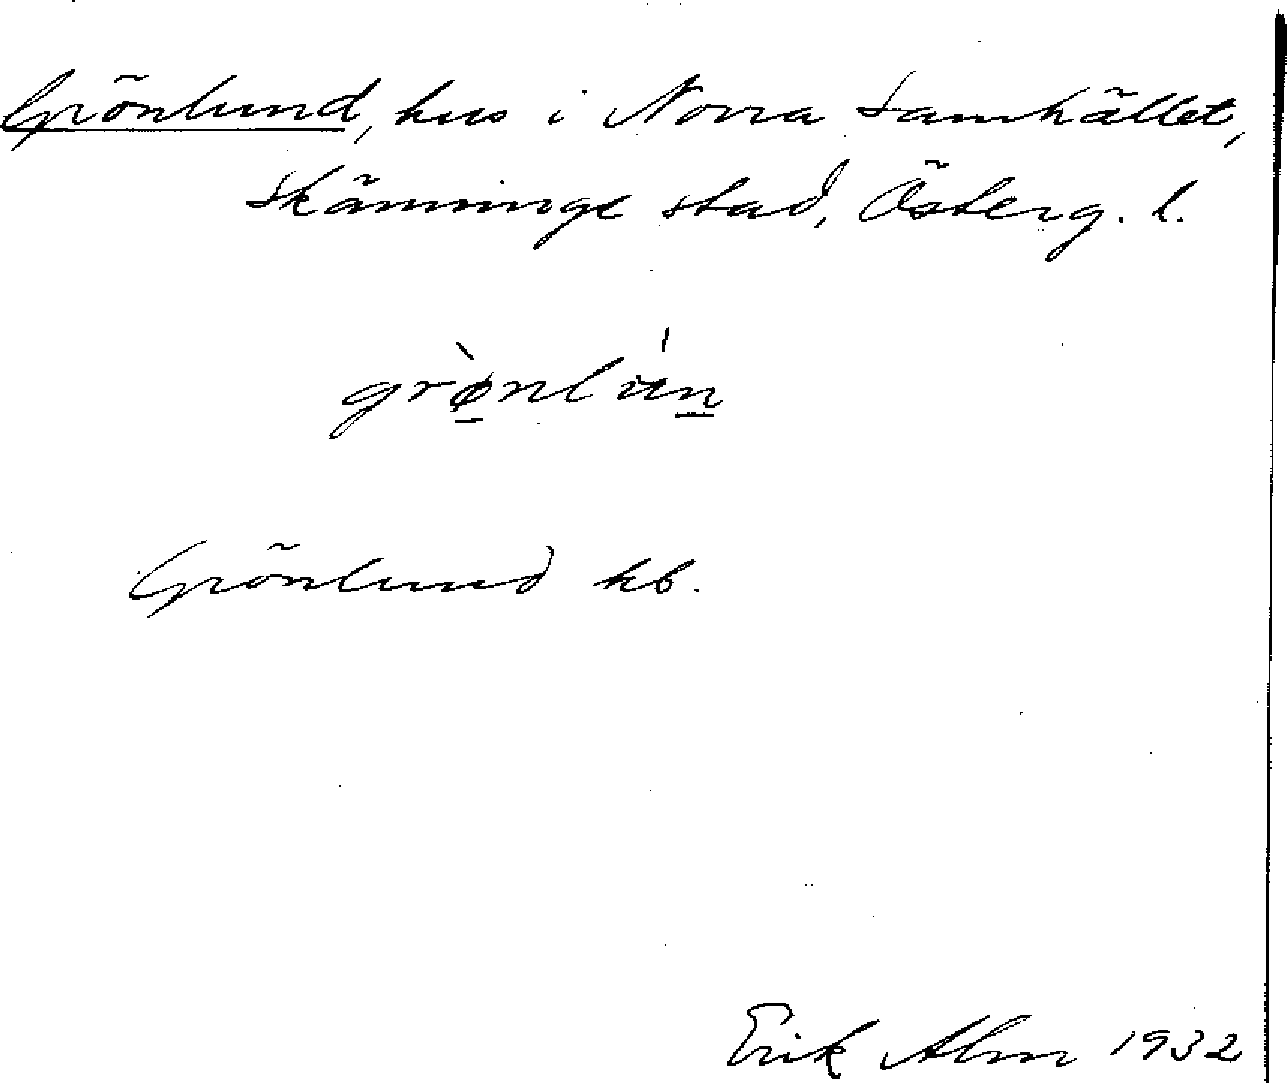 Grönlund, hus i Norra Samhället,
Skänninge stad, Österg. l.
grø̀nlún
Grönlund kb.
Erik Alm 1932